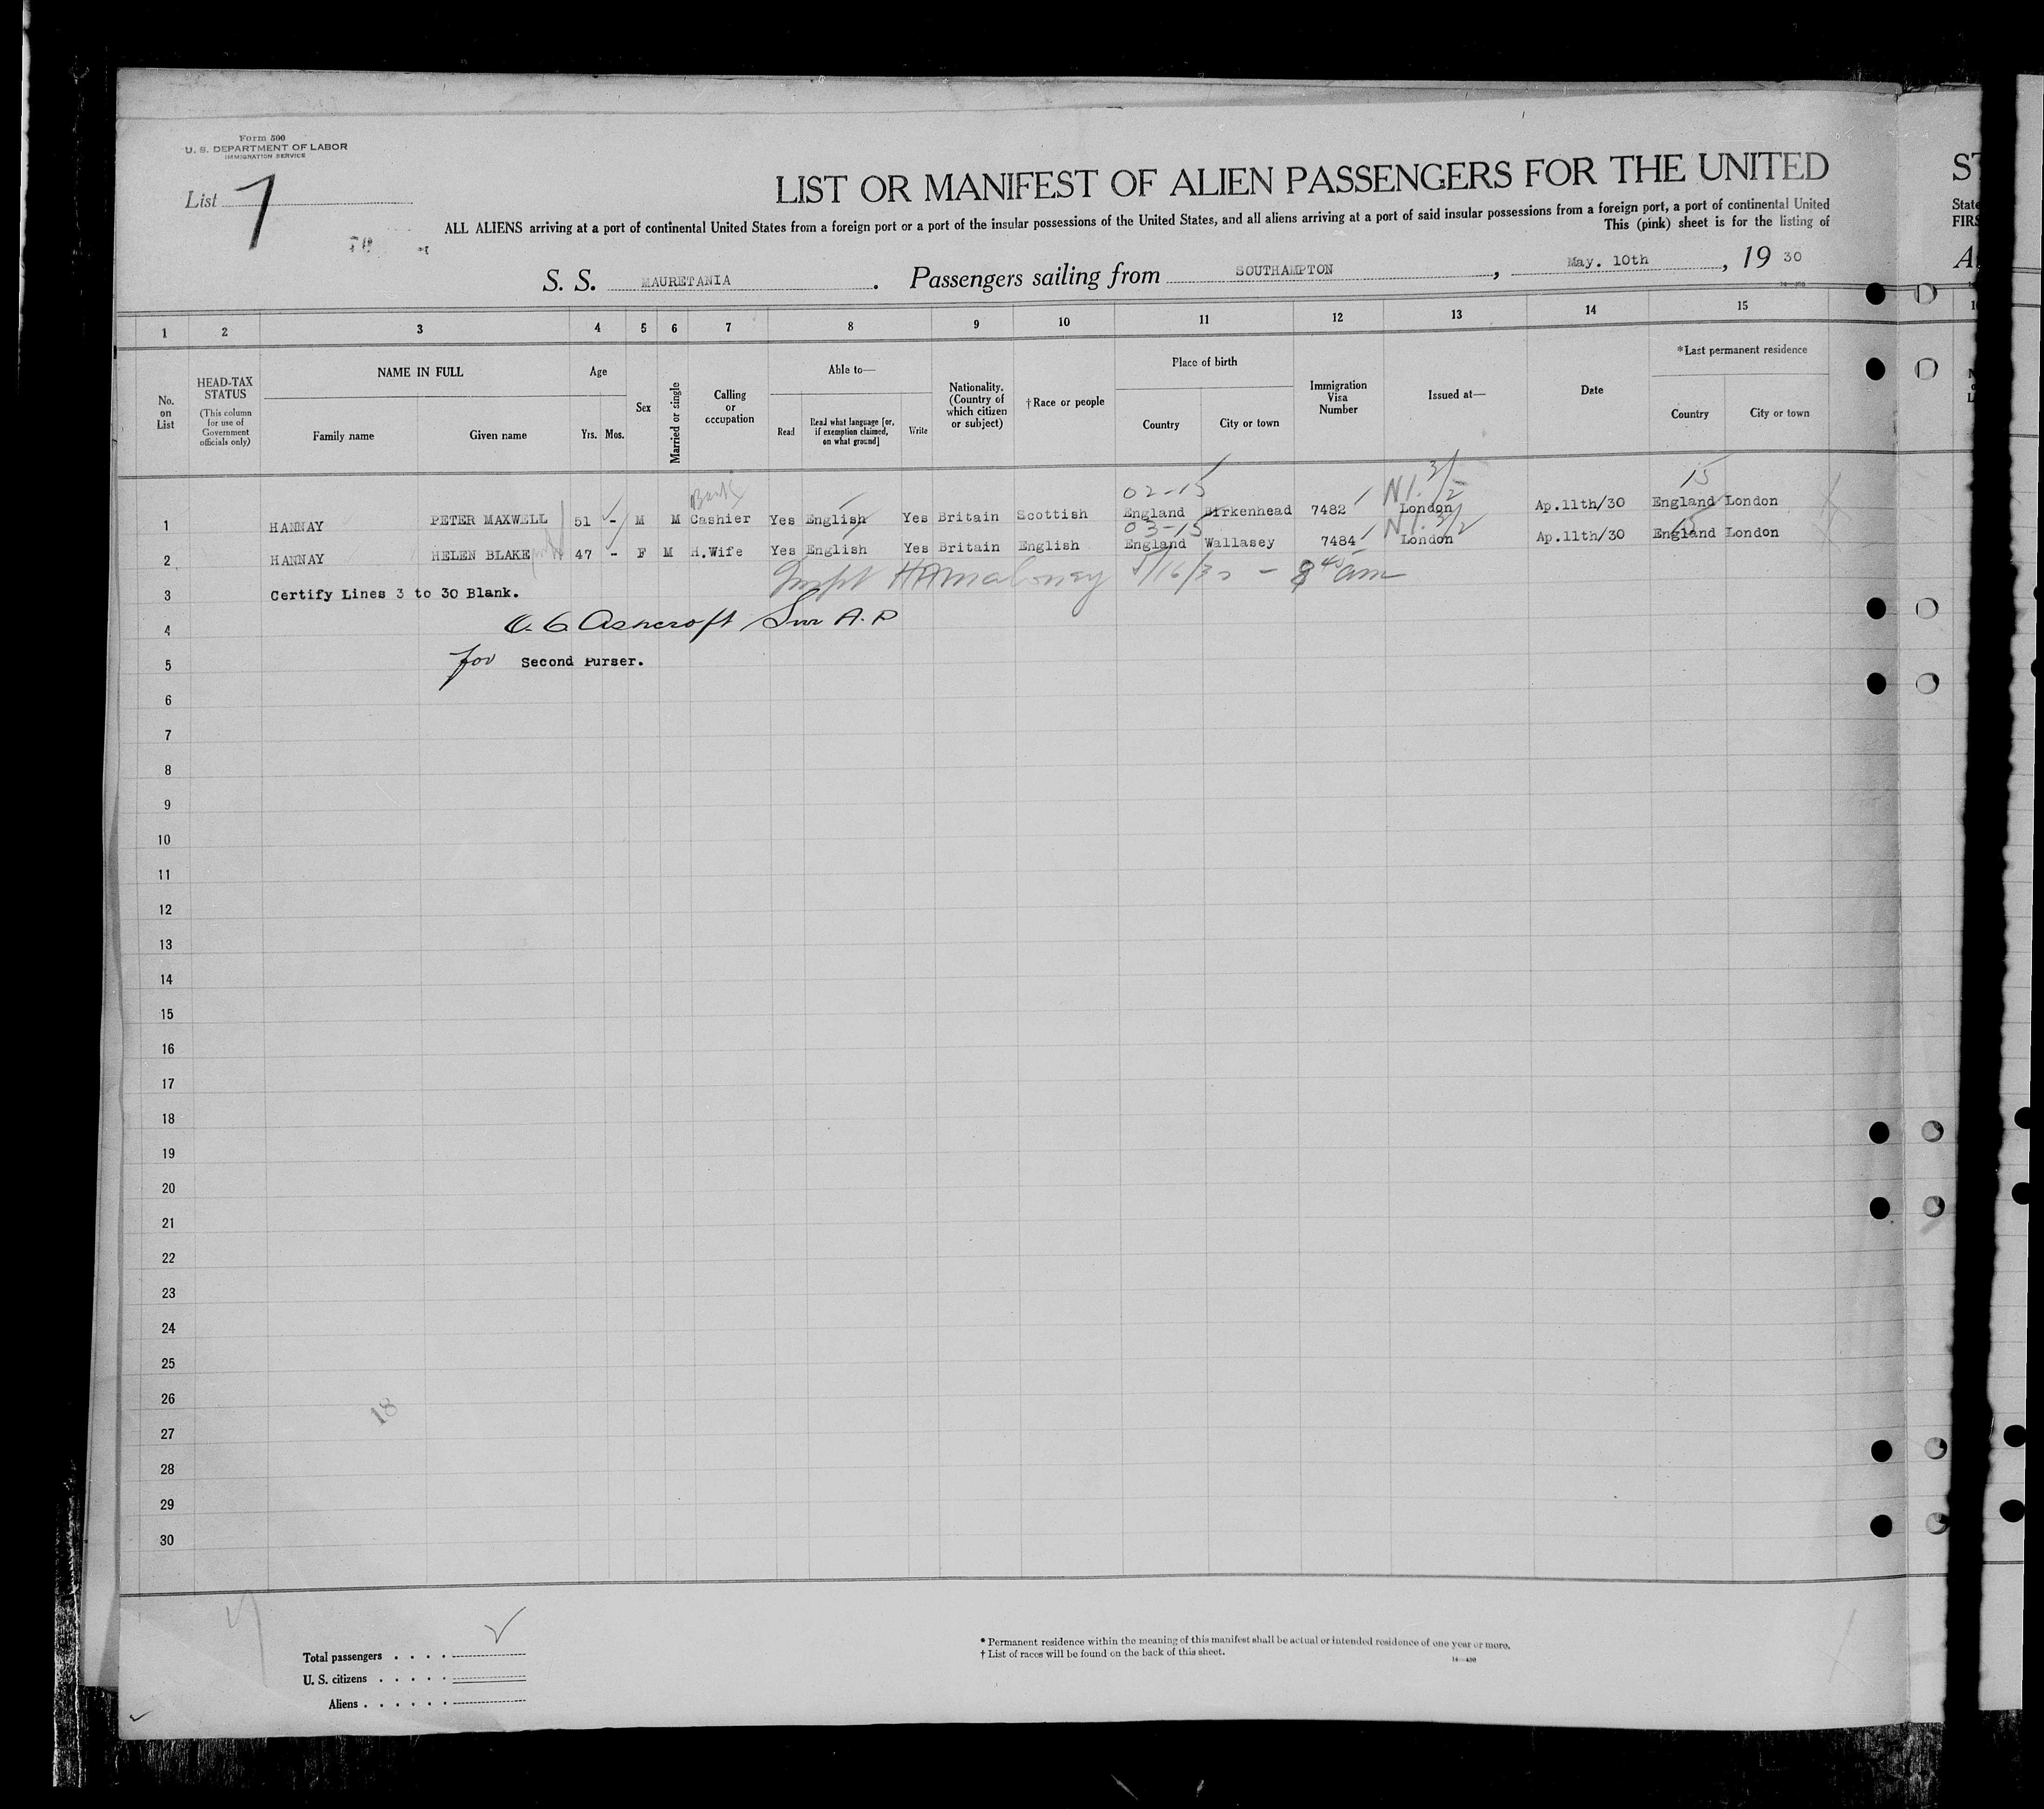 Form 500
U. S. DEPARTMENT OF LABOR
IMMIGRATION SERVICE
List 7
LIST OR MANIFEST OF ALIEN PASSENGERS FOR THE UNITED
ALL ALIENS arriving at a port of continental United States from a foreign port or a port of the insular possessions of the United States, and all aliens arriving at a port of said insular possessions from a foreign port, a port of continental United
This (pink) sheet is for the listing of
S. S. MAURETANIA. Passengers sailing from SOUTHAMPTON, May. 10th, 19 30
1 2 3 4 5 6 7 8 9 10 11 12 13 14 15
No. on List
HEAD-TAX STATUS (This column for use of Government officials only)
NAME IN FULL
Family name Given name
Age
Yrs. Mos.
Sex
Married or single
Calling or occupation
Able to—
Read
Read what language [or, if exemption claimed, on what ground]
Write
Nationality. (Country of which citizen or subject)
†Race or people
Place of birth
Country City or town
Immigration Visa Number
Issued at—
Date
*Last permanent residence
Country City or town
Bank 02-15 15
1 HANNAY PETER MAXWELL 51 - M M Cashier Yes English Yes Britain Scottish England Birkenhead 7482 London Ap.11th/30 England London
03-15 15
2 HANNAY HELEN BLAKE 47 - F M H.Wife Yes English Yes Britain English England Wallasey 7484 London Ap.11th/30 England London
3 Certify Lines 3 to 30 Blank.
4 Ashcroft
5 for Second Purser.
6
7
8
9
10
11
12
13
14
15
16
17
18
19
20
21
22
23
24
25
26
18
27
28
29
30
Total passengers
U. S. citizens
Aliens
* Permanent residence within the meaning of this manifest shall be actual or intended residence of one year or more.
† List of races will be found on the back of this sheet.
ST
State
FIRS
A